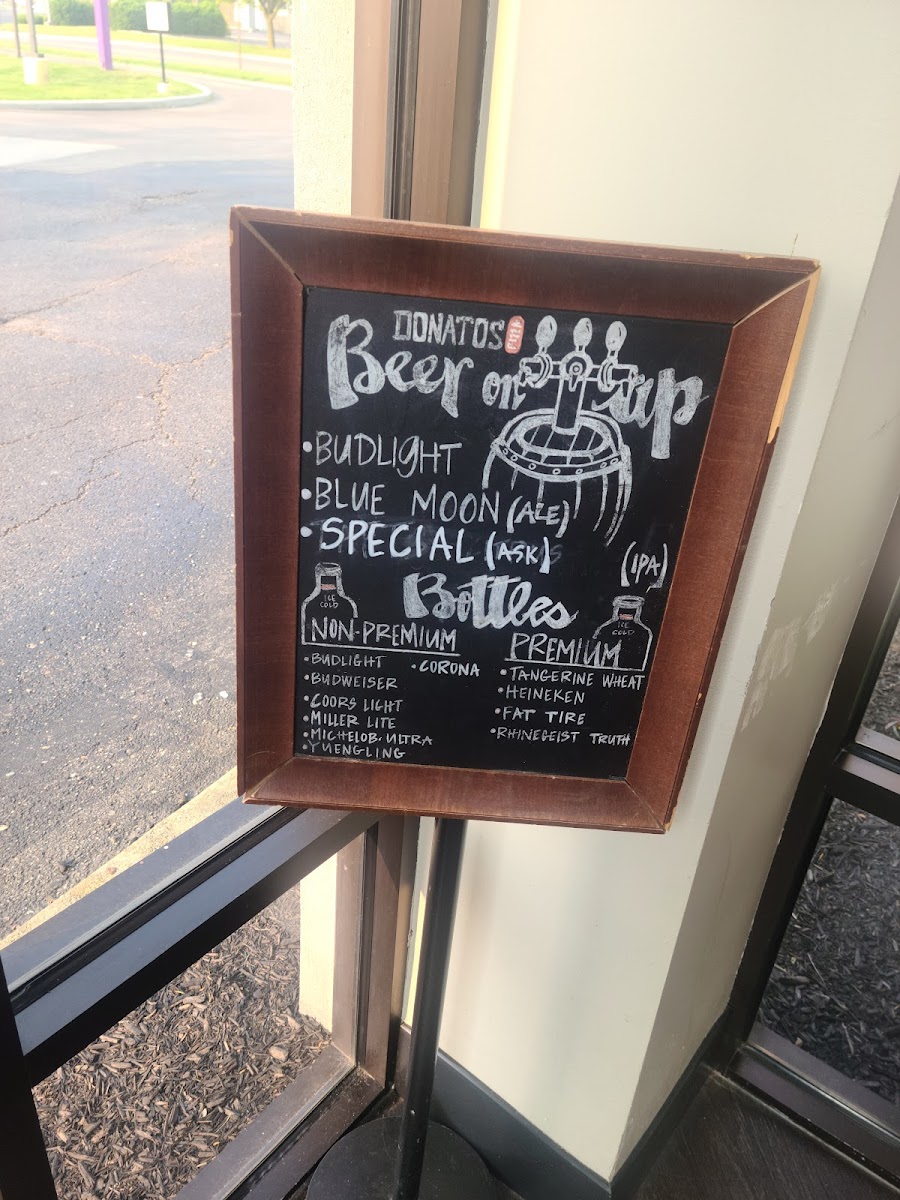 DONATOS
Beer on tap
• BUDLIGHT
• BLUE MOON (ALE)
• SPECIAL (ASK)
(IPA)
Bottles
ICE COLD
ICE COLD
NON-PREMIUM
• BUDLIGHT
• CORONA
• BUDWEISER
• COORS LIGHT
• MILLER LITE
• MICHELOB. ULTRA
• YUENGLING
PREMIUM
• TANGERINE WHEAT
• HEINEKEN
• FAT TIRE
• RHINEGEIST TRUTH